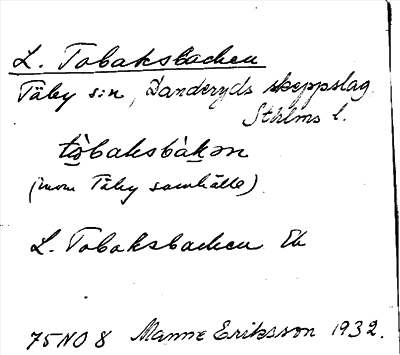 L. Tobaksbacken
Täby s:n, Danderyds skeppslag,
Sthlms l.
tò̲baksbàk̲ən
(inom Täby samhälle)
L. Tobaksbacken Ek
75NO8 Manne Eriksson 1932.